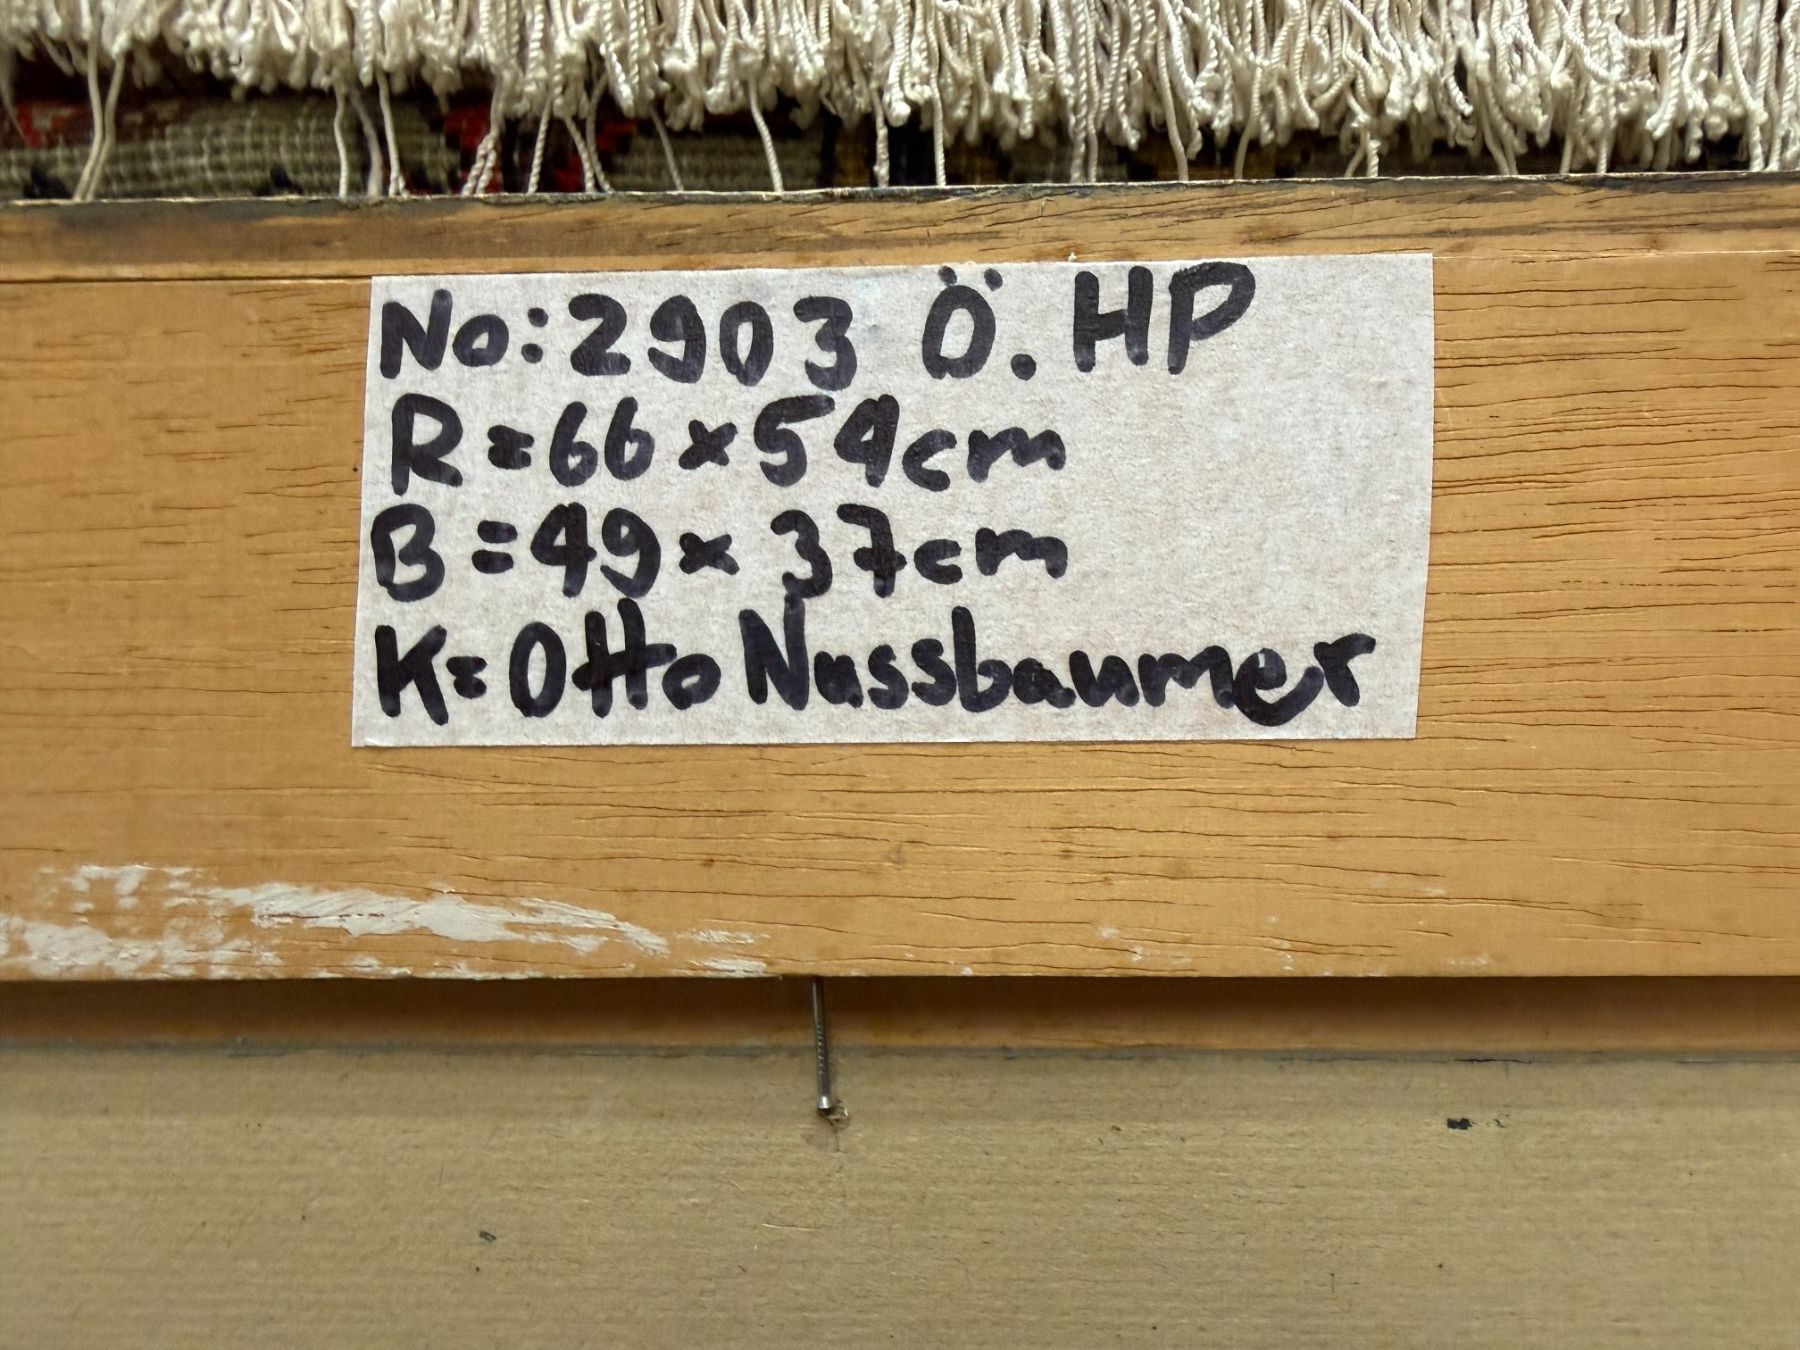 No: 2903 Ö. HP
R = 66 x 54cm
B = 49 x 37cm
K = Otto Nussbaumer